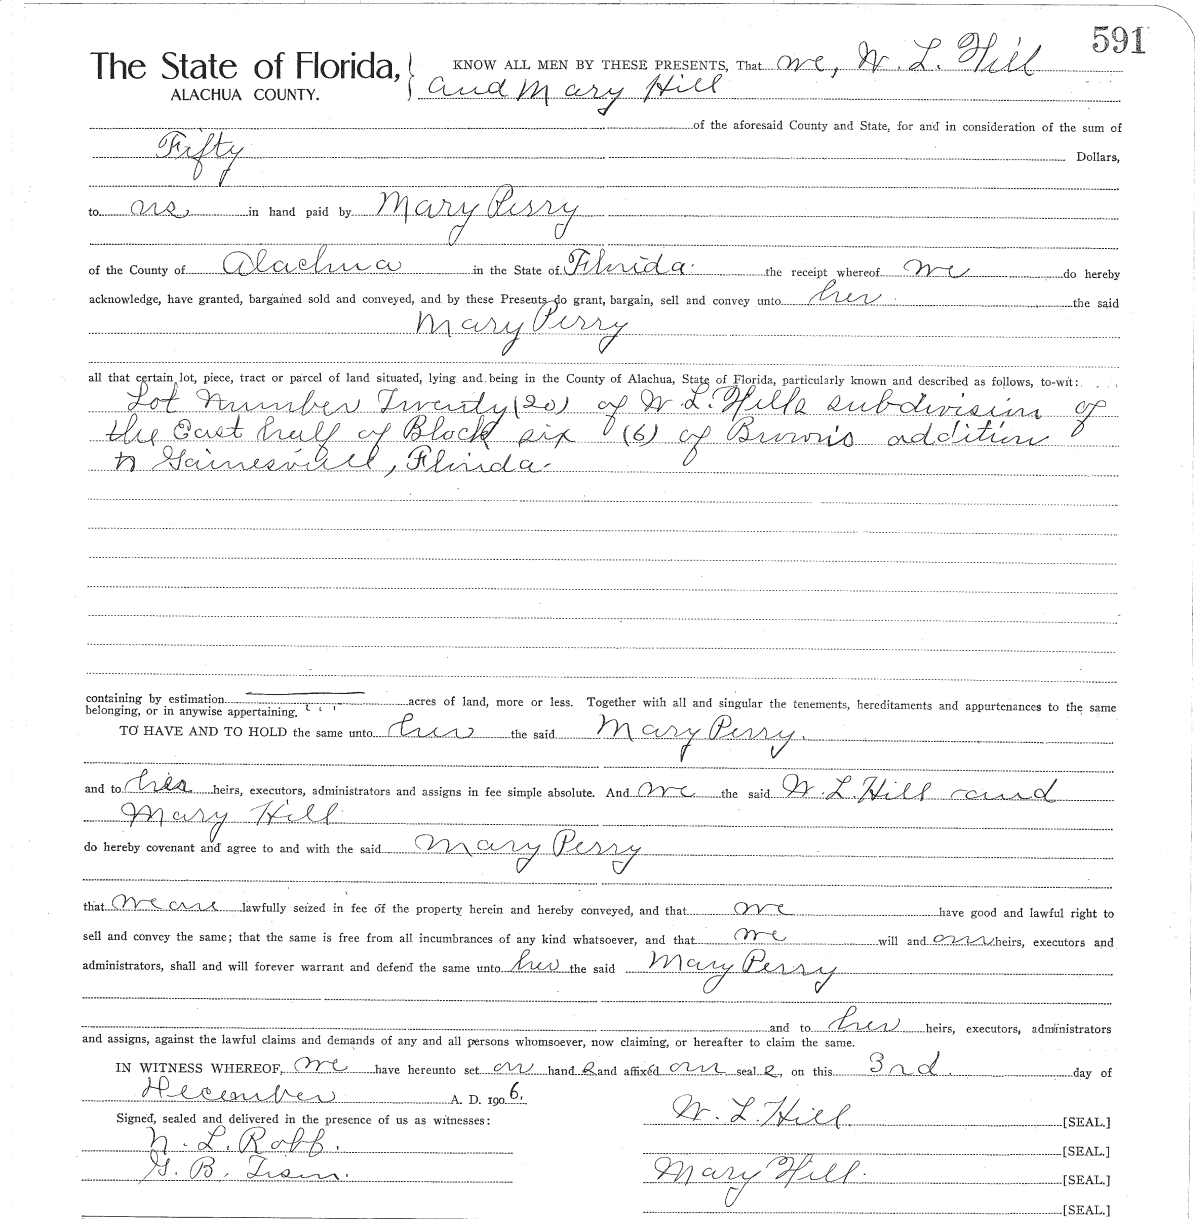 591
The State of Florida, KNOW ALL MEN BY THESE PRESENTS, That we, W. L. Hill
ALACHUA COUNTY. and Mary Hill
of the aforesaid County and State, for and in consideration of the sum of
Fifty Dollars,
to us in hand paid by Mary Perry
of the County of Alachua in the State of Florida. the receipt whereof we do hereby
acknowledge, have granted, bargained sold and conveyed, and by these Presents do grant, bargain, sell and convey unto her the said
Mary Perry
all that certain lot, piece, tract or parcel of land situated, lying and being in the County of Alachua, State of Florida, particularly known and described as follows, to-wit:
Lot Number Twenty (20) of W L. Hills subdivision of
the East half of Block six (6) of Brown's addition
to Gainesville, Florida.
containing by estimation acres of land, more or less. Together with all and singular the tenements, hereditaments and appurtenances to the same
belonging, or in anywise appertaining.
TO HAVE AND TO HOLD the same unto her the said Mary Perry.
and to her heirs, executors, administrators and assigns in fee simple absolute. And we the said W. L. Hill and
Mary Hill
do hereby covenant and agree to and with the said Mary Perry
that we are lawfully seized in fee of the property herein and hereby conveyed, and that we have good and lawful right to
sell and convey the same; that the same is free from all incumbrances of any kind whatsoever, and that we will and our heirs, executors and
administrators, shall and will forever warrant and defend the same unto her the said Mary Perry
and to her heirs, executors, administrators
and assigns, against the lawful claims and demands of any and all persons whomsoever, now claiming, or hereafter to claim the same.
IN WITNESS WHEREOF, we have hereunto set our hand s and affixed our seal s, on this 3rd. day of
December A. D. 1906.
Signed, sealed and delivered in the presence of us as witnesses: W. L. Hill. [SEAL.]
N. L. Robb. [SEAL.]
G. B. Mary Hill. [SEAL.]
[SEAL.]